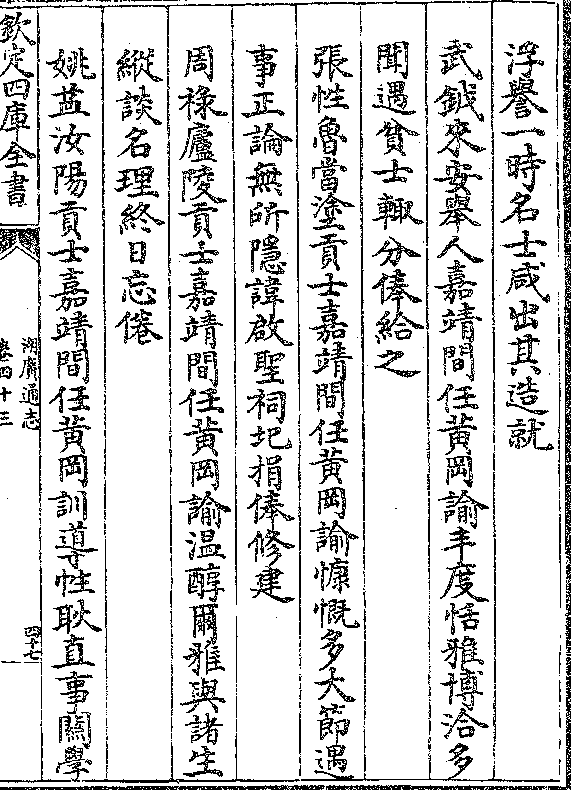 浮譽一時名士咸出其造就
武鉞來安舉人嘉靖間任黄岡諭丰度恬雅博洽多
聞遇貧士輙分俸給之
張性魯當塗貢士嘉靖間任黄岡諭慷慨多大節遇
事正論無所隱諱啟聖祠圮捐俸修建
周禄廬陵貢士嘉靖間任黄岡諭温醇爾雅與諸生
縱談名理終日忘倦
姚藍汝陽貢士嘉靖間任黄岡訓導性耿直事關學
欽定四庫全書
湖廣通志
卷四十三
四十七